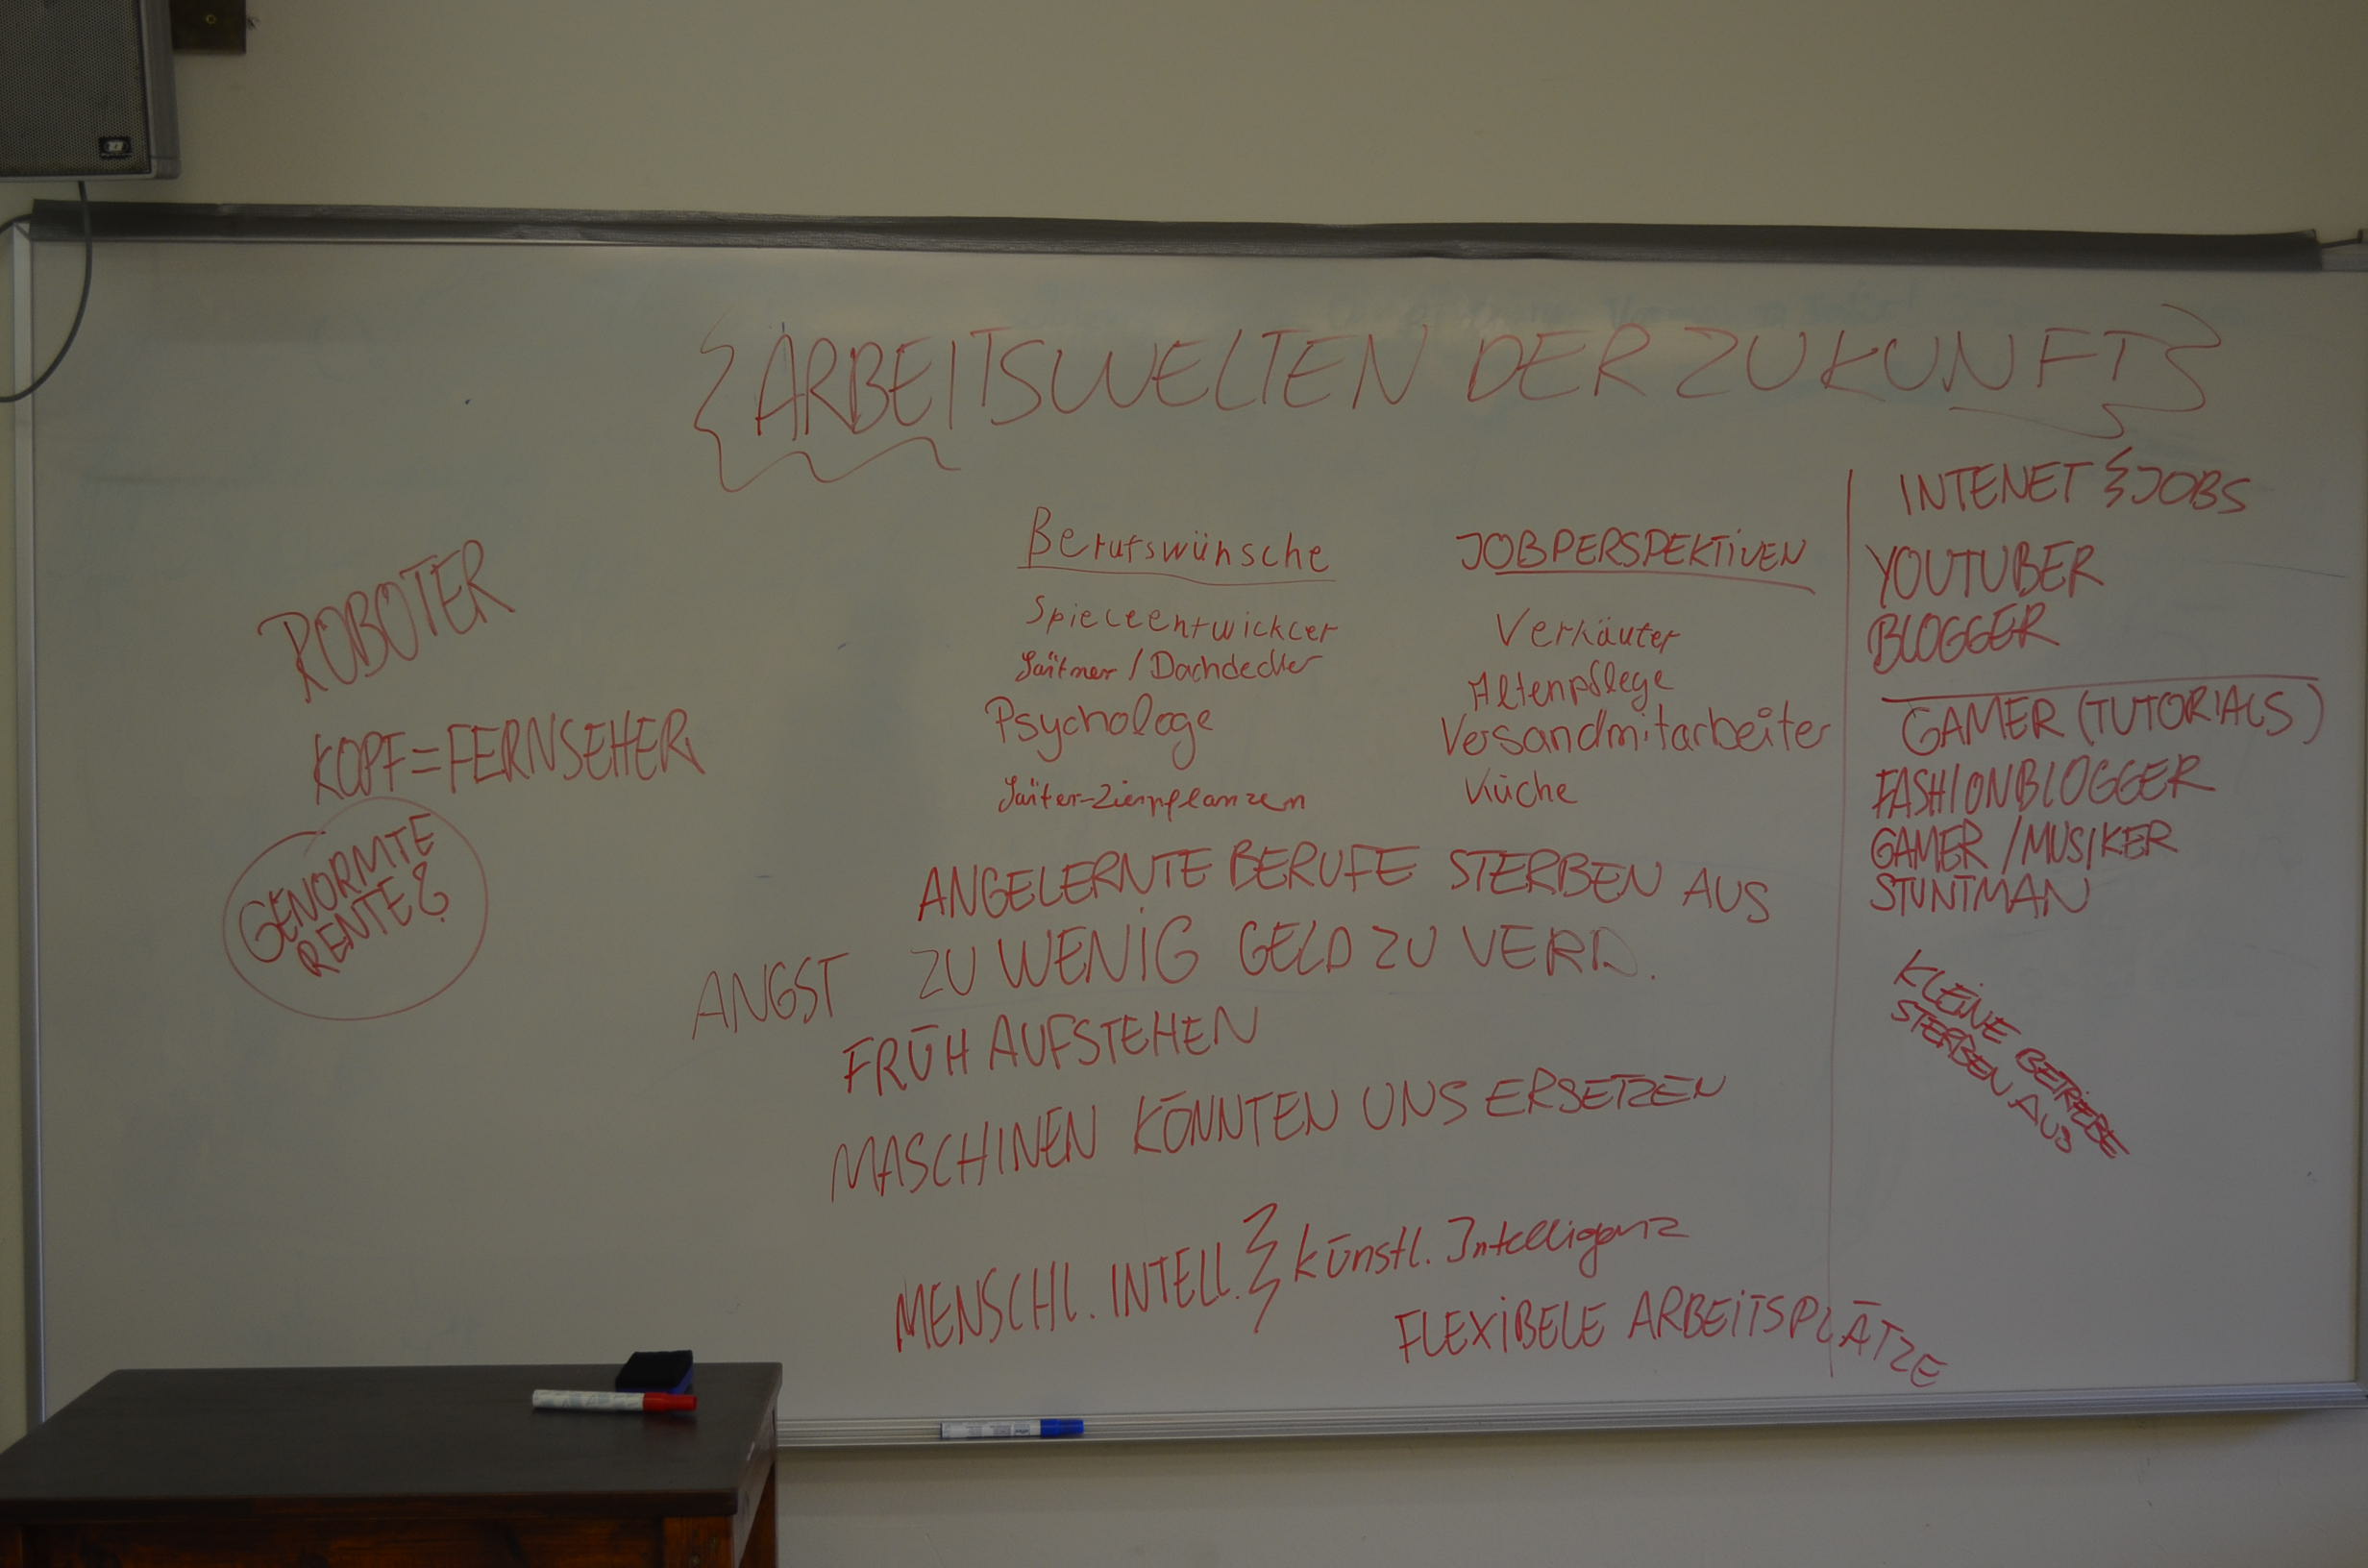 ARBEITSWELTEN DER ZUKUNFT
ROBOTER
KOPF=FERNSEHER
GENORMTE
RENTE?
Berufswünsche
Spieleentwickler
Gärtner / Dachdecker
Psychologe
Gärtner-Zierpflanzen
JOBPERSPEKTIVEN
Verkäufer
Altenpflege
Versandmitarbeiter
Küche
ANGELERNTE BERUFE STERBEN AUS
ANGST ZU WENIG GELD ZU VERD.
FRÜH AUFSTEHEN
MASCHINEN KÖNNTEN UNS ERSETZEN
MENSCHL. INTELL. künstl. Intelligenz
FLEXIBELE ARBEITSPLÄTZE
INTENET & JOBS
YOUTUBER
BLOGGER
GAMER (TUTORIALS)
FASHIONBLOGGER
GAMER / MUSIKER
STUNTMAN
KLEINE BETRIEBE
STERBEN AUS